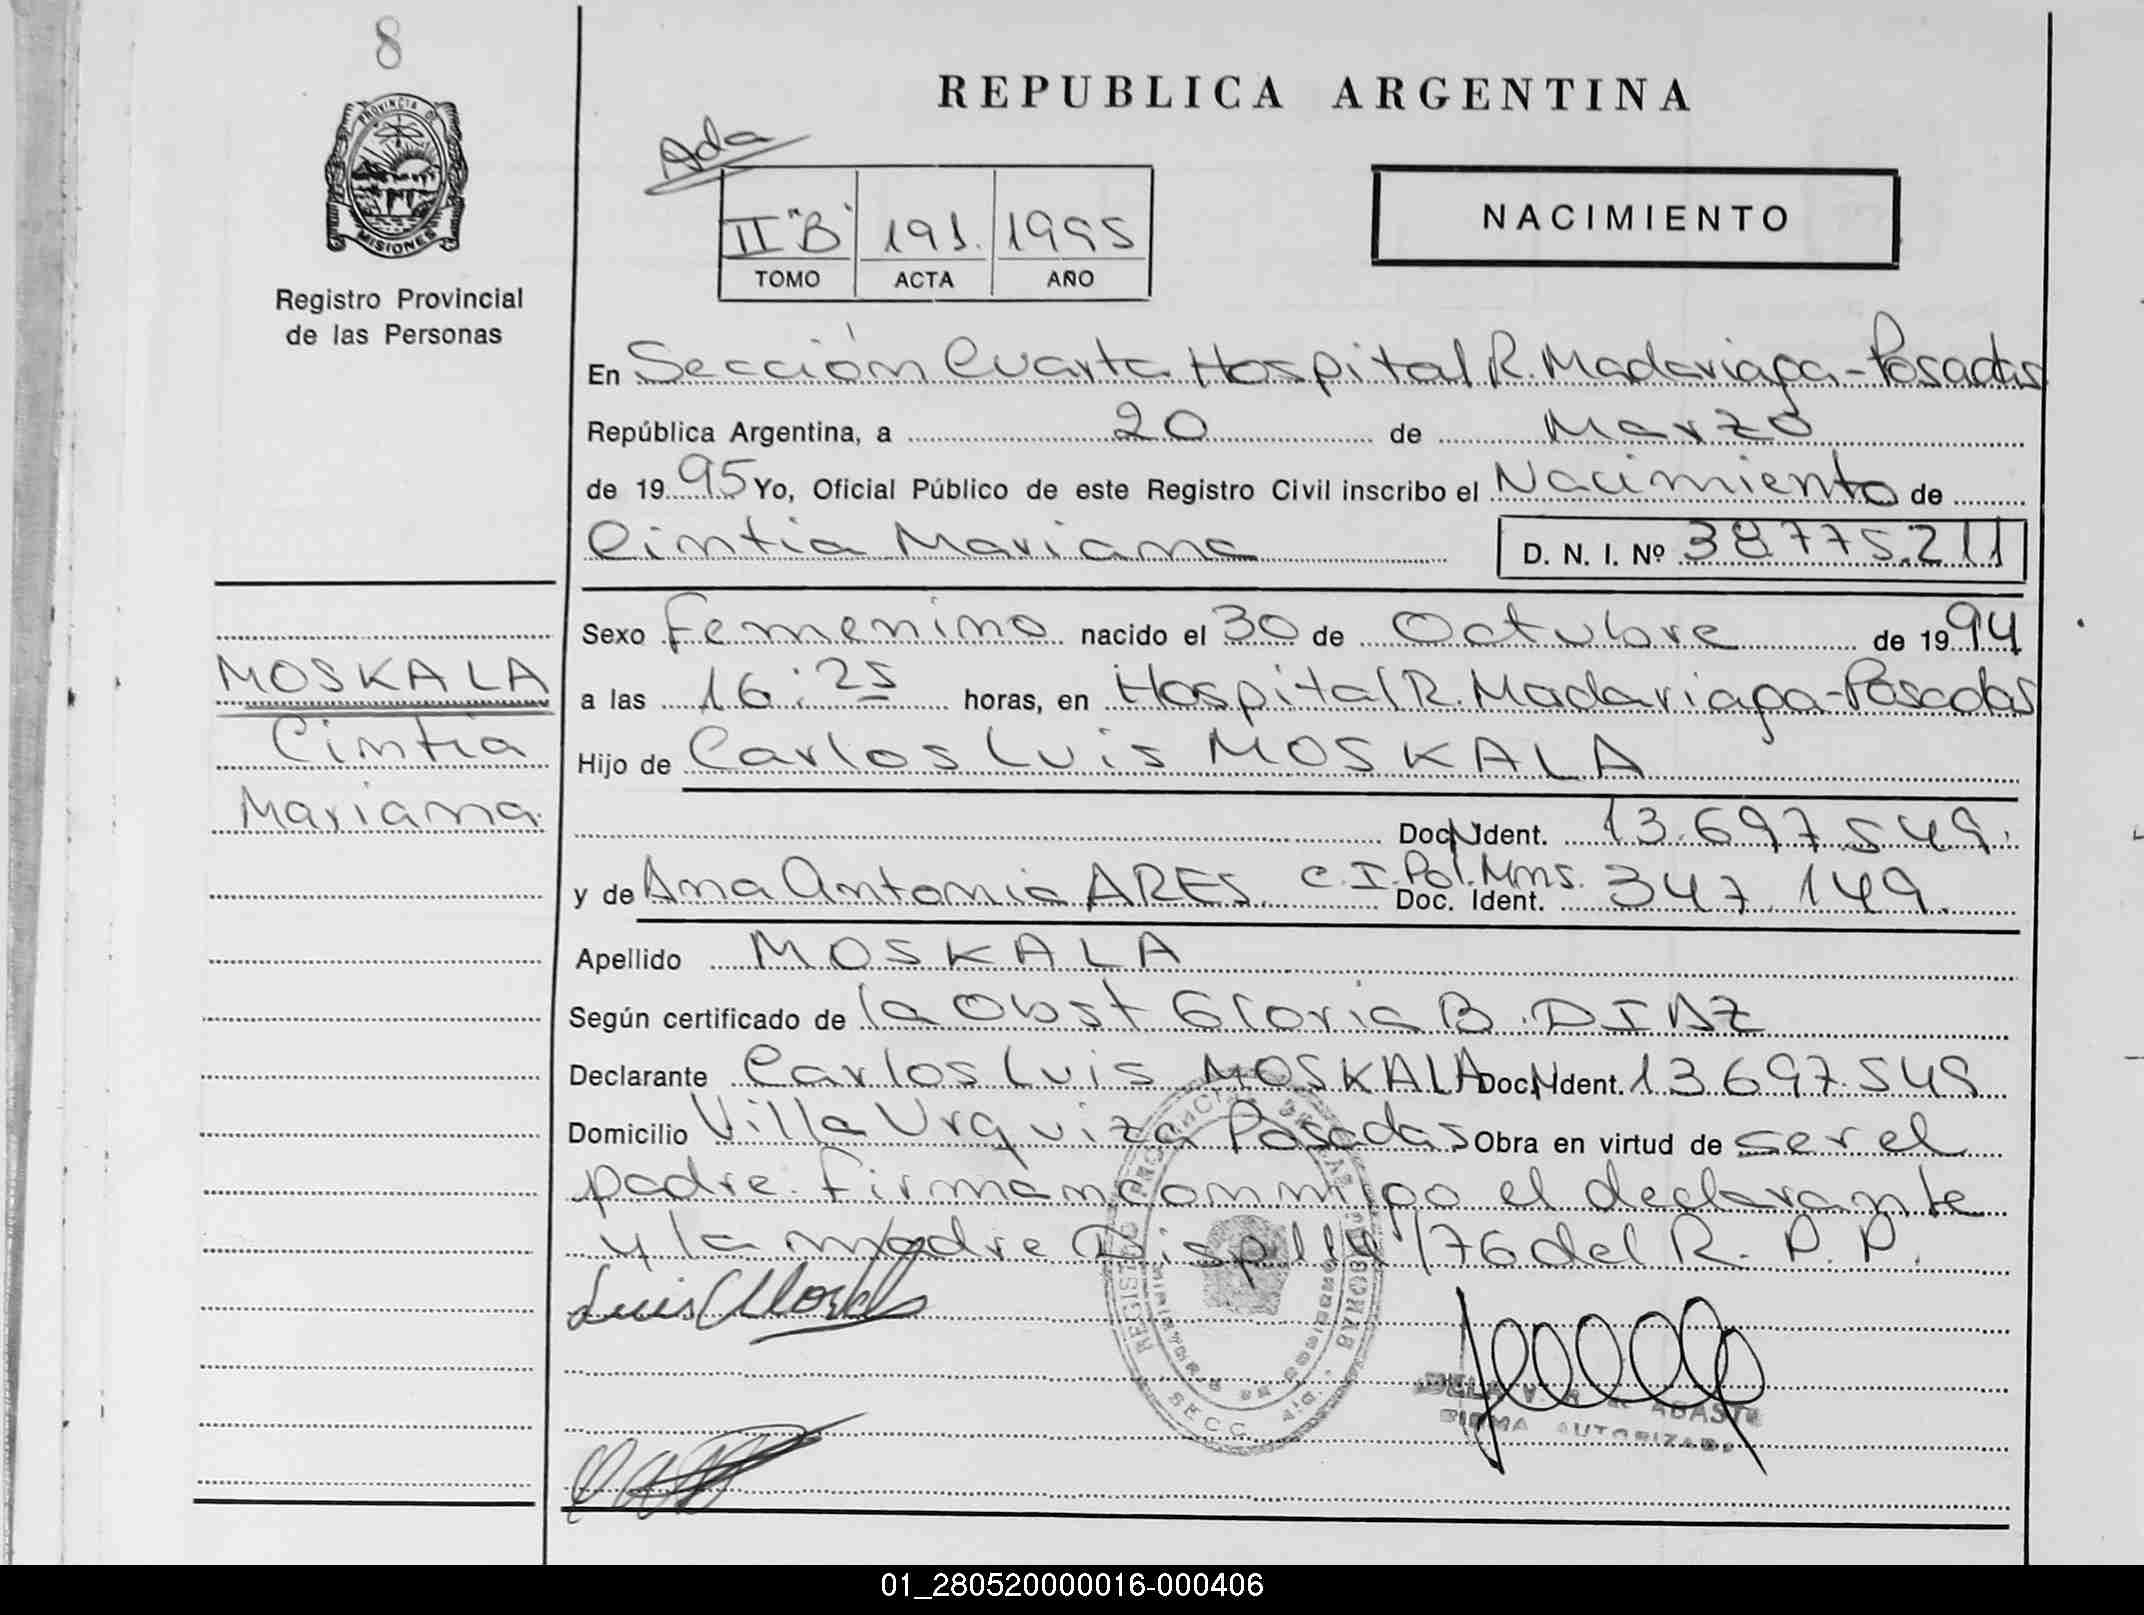 8
PROVINCIA DE
MISIONES
Registro Provincial
de las Personas
REPUBLICA ARGENTINA
Ada
II "B" 191. 1995
TOMO ACTA AÑO
NACIMIENTO
En Sección Cuarta Hospital R. Madariaga - Posadas
República Argentina, a 20 de Marzo
de 1995 Yo, Oficial Público de este Registro Civil inscribo el Nacimiento de
Cintia Mariana D. N. I. Nº 38.775.211
Sexo femenino nacido el 30 de Octubre de 1994
a las 16:25 horas, en Hospital R. Madariaga - Posadas
Hijo de Carlos Luis MOSKALA
Doc. N Ident. 13.697.549.
y de Ana Antonia ARES. C.I. Pol. Mns. Doc. Ident. 347.149.
Apellido MOSKALA
Según certificado de la Obst Gloria B. DIAZ
Declarante Carlos Luis MOSKALA Doc. N Ident. 13.697.549
Domicilio Villa Urquiza Posadas Obra en virtud de ser el
padre. firman conmigo el declarante
y la madre Disp 114/76 del R. P. P.
MOSKALA
Cintia
Mariana.
SECC. 4ta.
FIRMA AUTORIZADA
01_280520000016-000406